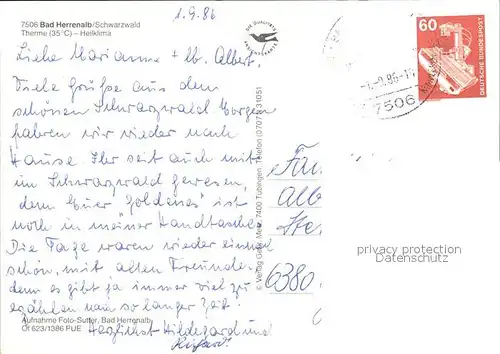 1.9.86
7506 Bad Herrenalb/Schwarzwald
Therme (35°C) – Heilklima
60
DEUTSCHE BUNDESPOST
7506
Liebe Marianne + lb. Albert!
Viele Grüße aus dem
schönen Schwarzwald. Morgen
fahren wir wieder nach
Hause. Ihr seit auch mit
im Schwarzwald gewesen,
denn Euer "Goldenes" ist
noch in meiner Handtasche.
Die Tage waren wieder einmal
schön, mit alten Freunden,
denn es gibt ja immer viel zu
erzählen nach so langer Zeit!
Herzlichst Hildegard und
Richard.
Fam
Alb
6380
© Verlag Gebr. Metz, 7400 Tübingen, Telefon (07071) 31051
privacy protection
Datenschutz
Aufnahme Foto-Sutter, Bad Herrenalb
Ot 623/1386 PUE